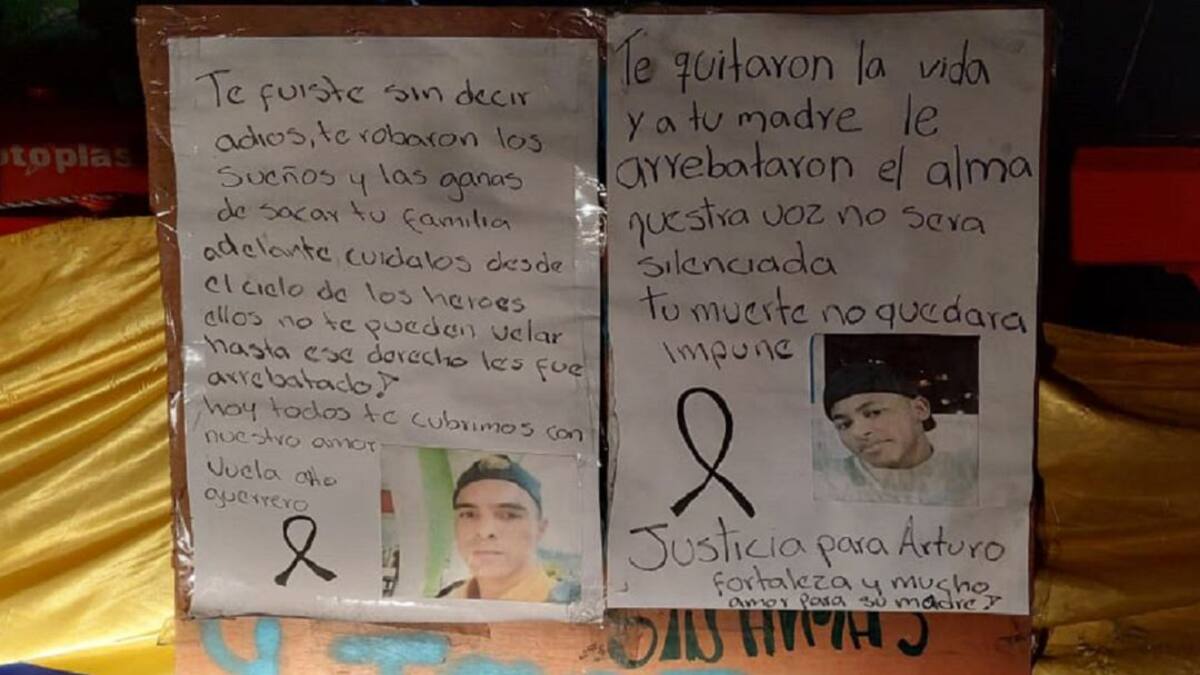 Te fuiste sin decir
adios, te robaron los
sueños y las ganas
de sacar tu familia
adelante, cuidalos desde
el cielo de los heroes
ellos no te pueden velar
hasta ese derecho les fue
arrebatado!
hoy todos te cubrimos con
nuestro amor
Vuela alto
guerrero
Te quitaron la vida
y a tu madre le
arrebataron el alma
nuestra voz no sera
silenciada
tu muerte no quedara
impune
Justicia para Arturo
fortaleza y mucho
amor para su madre!
otoplas